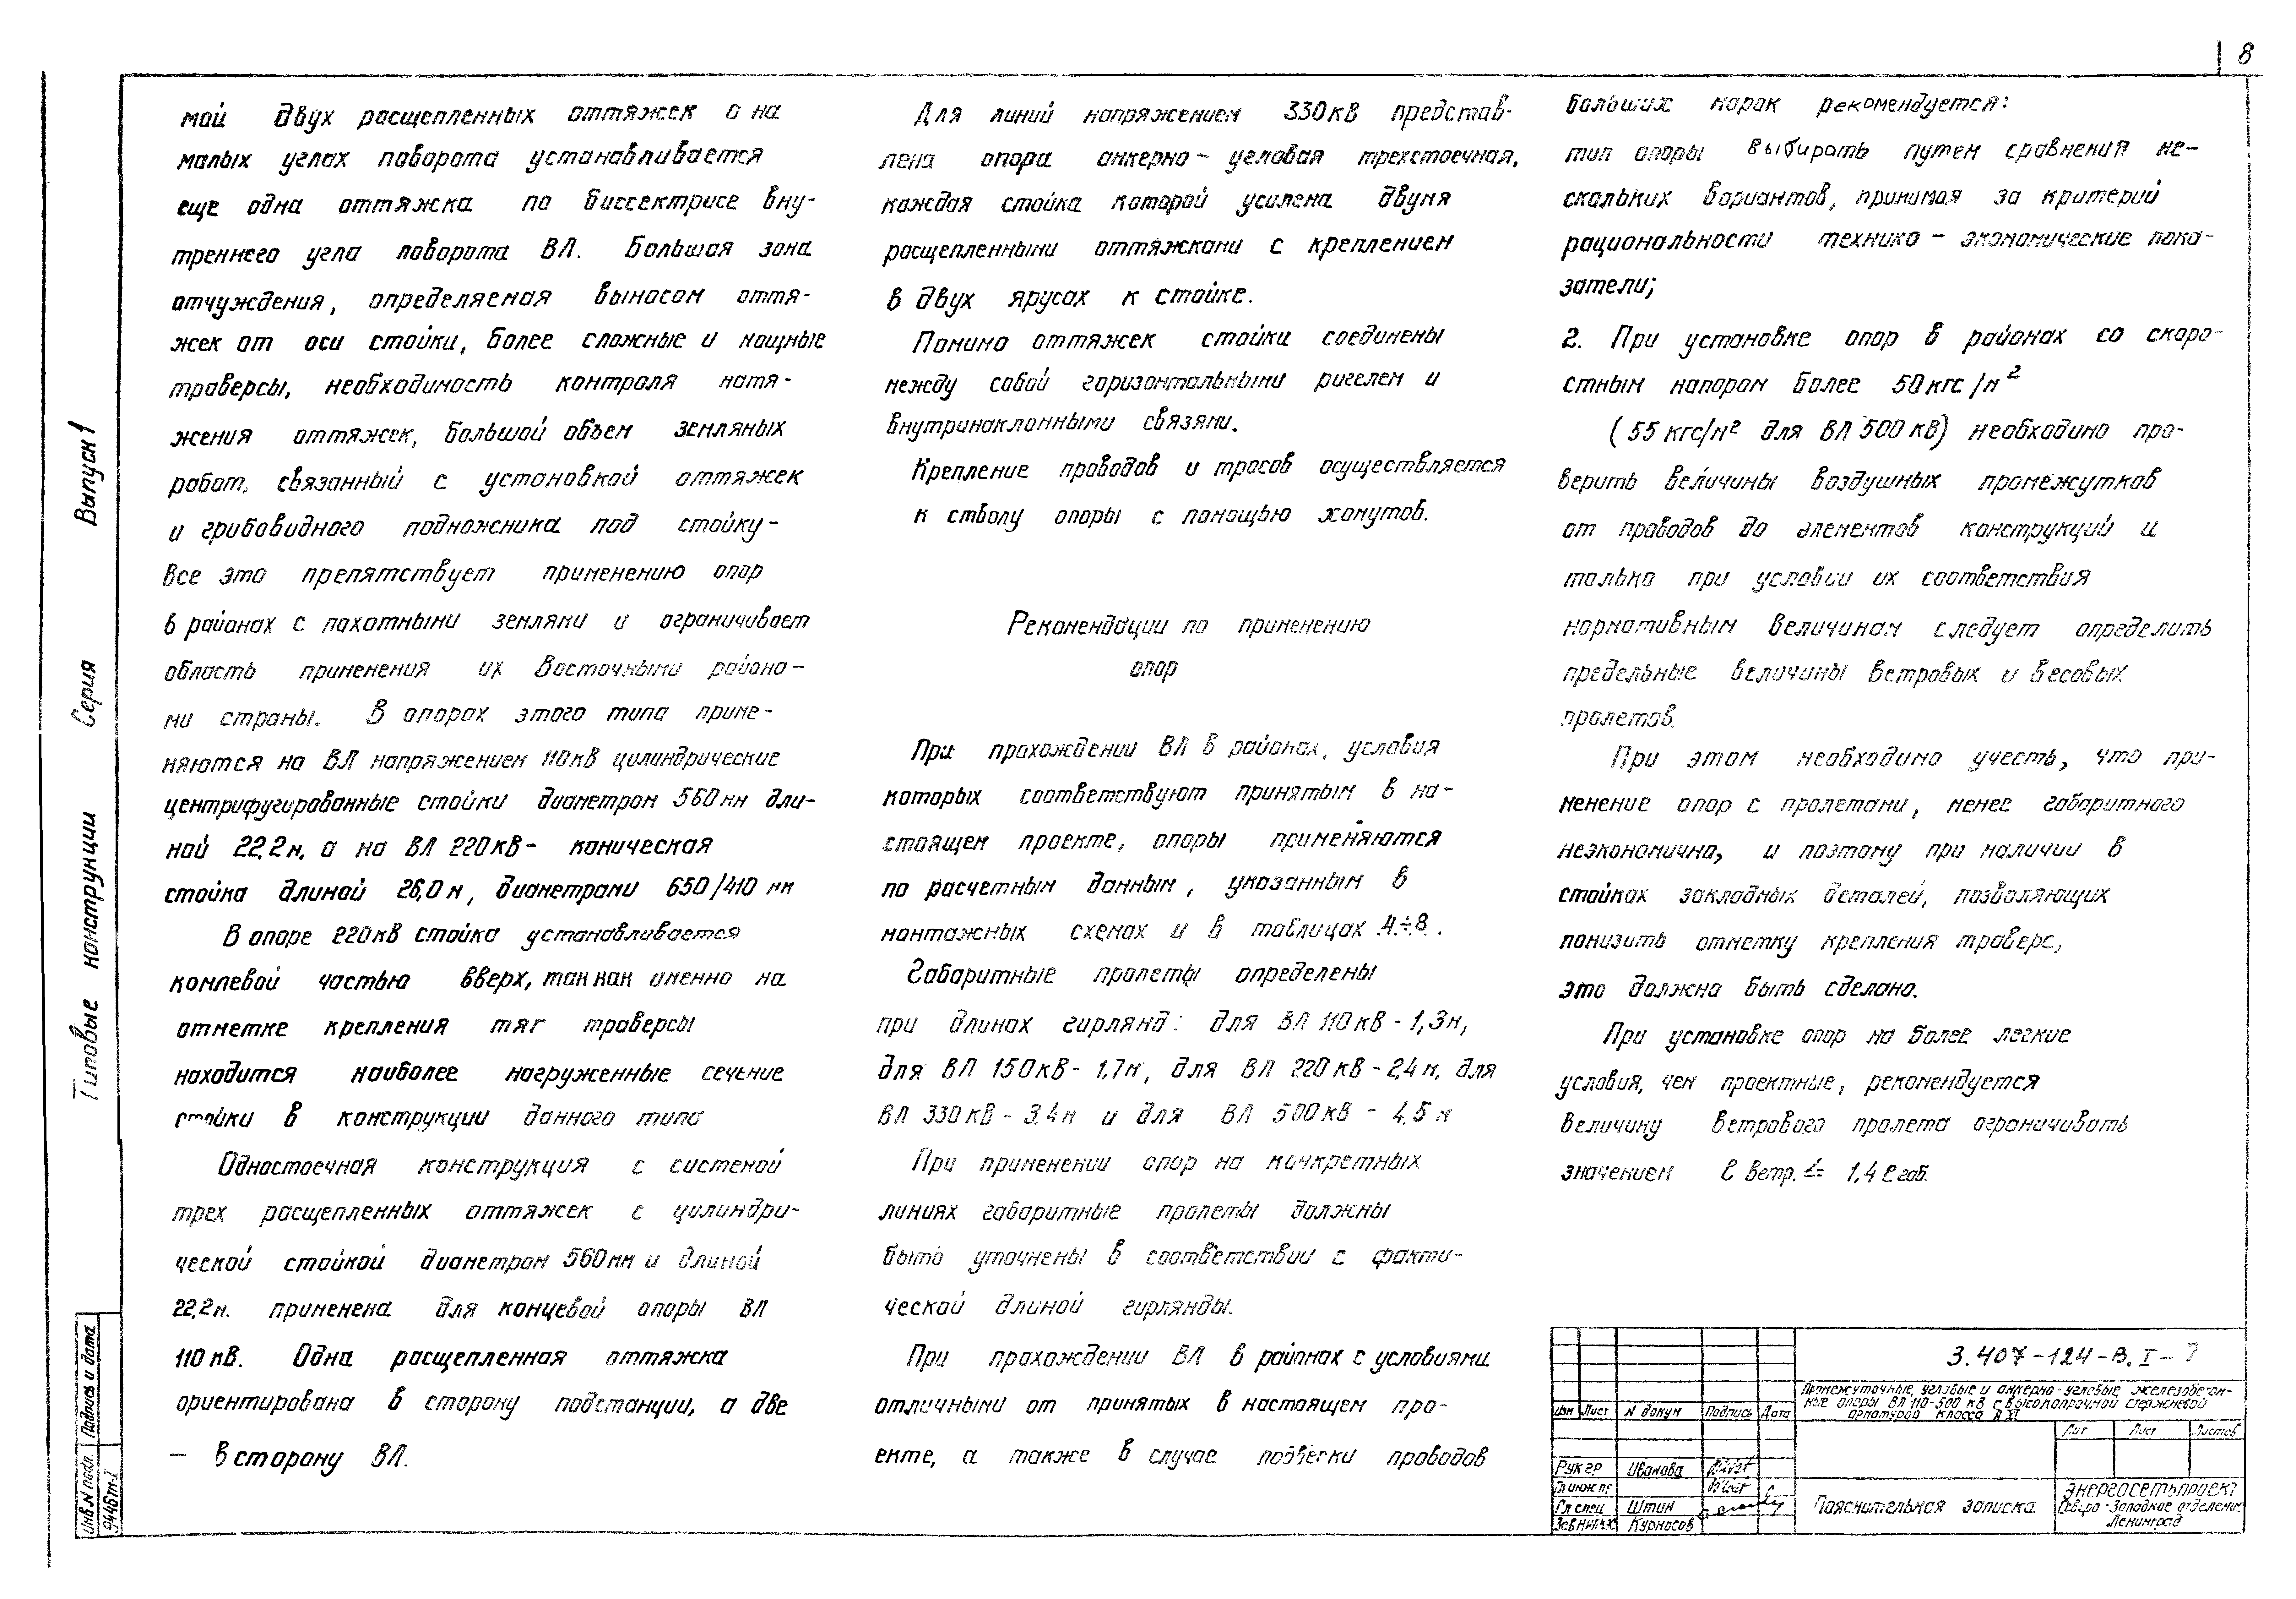 8
мой двух расщепленных оттяжек а на
малых углах поворота устанавливается
еще одна оттяжка по биссектрисе вну-
треннего угла поворота ВЛ. Большая зона
отчуждения, определяемая выносом оття-
жек от оси стойки, более сложные и мощные
траверсы, необходимость контроля натя-
жения оттяжек, большой объем земляных
работ, связанный с установкой оттяжек
и грибовидного подножника под стойку-
Все это препятствует применению опор
в районах с пахотными землями и ограничивает
область применения их Восточными района-
ми страны. В опорах этого типа приме-
няются на ВЛ напряжением 110кВ цилиндрические
центрифугированные стойки диаметром 560мм дли-
ной 22,2м, а на ВЛ 220кВ- коническая
стойка длиной 26,0м, диаметрами 650/410 мм
В опоре 220кВ стойка устанавливается
комлевой частью вверх, так как именно на
отметке крепления тяг траверсы
находится наиболее нагруженные сечение
стойки в конструкции данного типа
Одностоечная конструкция с системой
трех расщепленных оттяжек с цилиндри-
ческой стойкой диаметром 560мм и длиной
22,2м. применена для концевой опоры ВЛ
110кВ. Одна расщепленная оттяжка
ориентирована в сторону подстанции, а две
— в сторону ВЛ.
Для линий напряжением 330кВ представ-
лена опора анкерно-угловая трехстоечная,
каждая стойка которой усилена двумя
расщепленными оттяжками с креплением
в двух ярусах к стойке.
Помимо оттяжек стойки соединены
между собой горизонтальными ригелем и
внутринаклонными связями.
Крепление проводов и тросов осуществляется
к стволу опоры с помощью хомутов.
Рекомендации по применению
опор
При прохождении ВЛ в районах, условия
которых соответствуют принятым в на-
стоящем проекте, опоры применяются
по расчетным данным, указанным в
монтажных схемах и в таблицах 4÷8.
Габаритные пролеты определены
при длинах гирлянд: для ВЛ 110кВ-1,3м,
для ВЛ 150кВ-1,7м, для ВЛ 220кВ-2,4м, для
ВЛ 330кВ-3.4м и для ВЛ 500кВ - 4.5м
При применении опор на конкретных
линиях габаритные пролеты должны
быть уточнены в соответствии с факти-
ческой длиной гирлянды.
При прохождении ВЛ в районах с условиями
отличными от принятых в настоящем про-
екте, а также в случае подвески проводов
больших марок рекомендуется:
тип опоры выбирать путем сравнения не-
скольких вариантов, принимая за критерий
рациональности технико-экономические пока-
затели;
2. При установке опор в районах со скоро-
стным напором более 50кгс/м²
(55кгс/м² для ВЛ 500кВ) необходимо про-
верить величины воздушных промежутков
от проводов до элементов конструкций и
только при условии их соответствия
нормативным величинам следует определить
предельные величины ветровых и весовых
пролетов.
При этом необходимо учесть, что при-
менение опор с пролетами, менее габаритного
неэкономично, и поэтому при наличии в
стойках закладных деталей, позволяющих
понизить отметку крепления траверс,
это должно быть сделано.
При установке опор на более легкие
условия, чем проектные, рекомендуется
величину ветрового пролета ограничивать
значением ℓ ветр. ≤ 1,4 ℓ габ.
Типовые конструкции Серия Выпуск 1
Инв.N подл. Подпись и дата
9446тм-I
3.407-124-В.I-7
Промежуточные, угловые и анкерно-угловые железобетон-
ные опоры ВЛ 110-500 кВ с высокопрочной стержневой
арматурой класса А VI
Изм Лист N докум Подпись Дата
Лит Лист Листов
Рук гр Иванова
Гл инж пр
Гл спец Штин
Зав НИЛКЭ Курносов
Пояснительная записка
Энергосетьпроект
Северо-Западное отделение
Ленинград